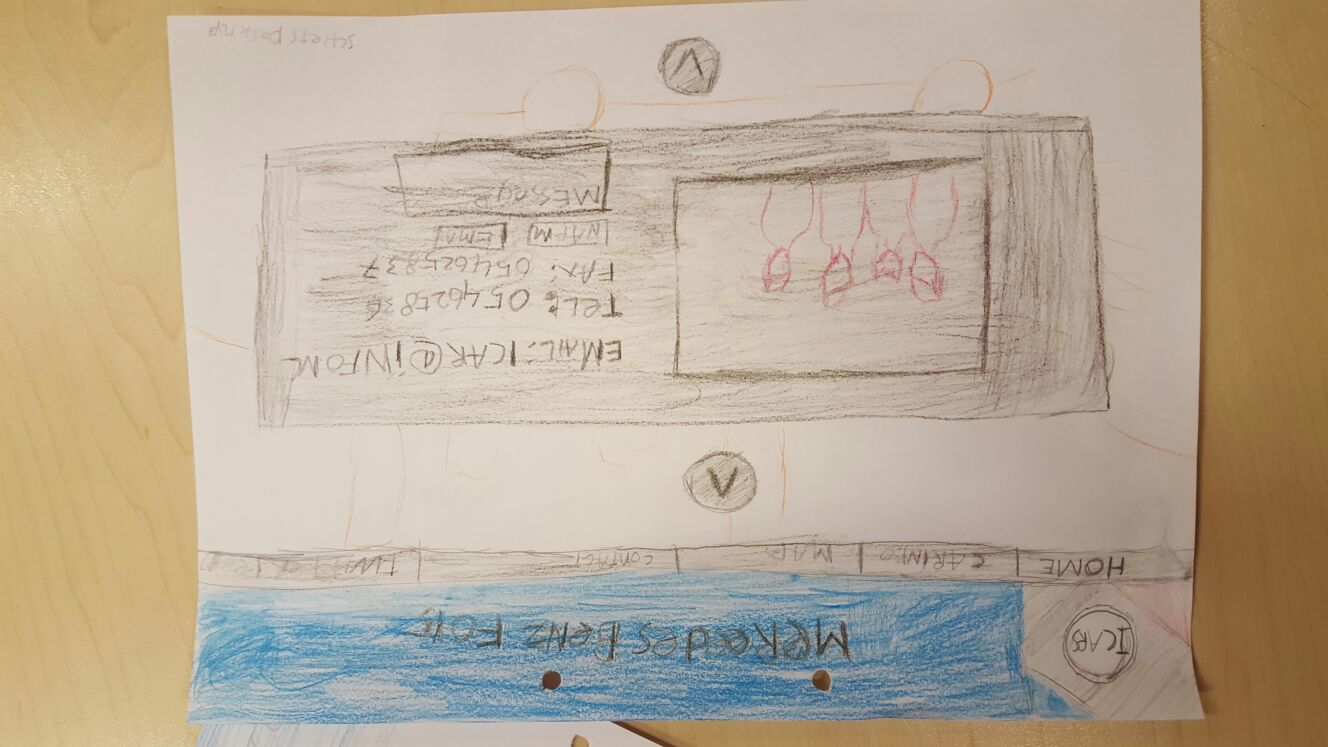 ICARS
MeRcedes Benz F015
HOME
CARINFO
MAP
CONTACT
EMAIL: ICAR@iNFOM
TEL: 054625836
FAX: 054625837
NAAM EMAI
MESSAGE
SCHETS DESKTOP